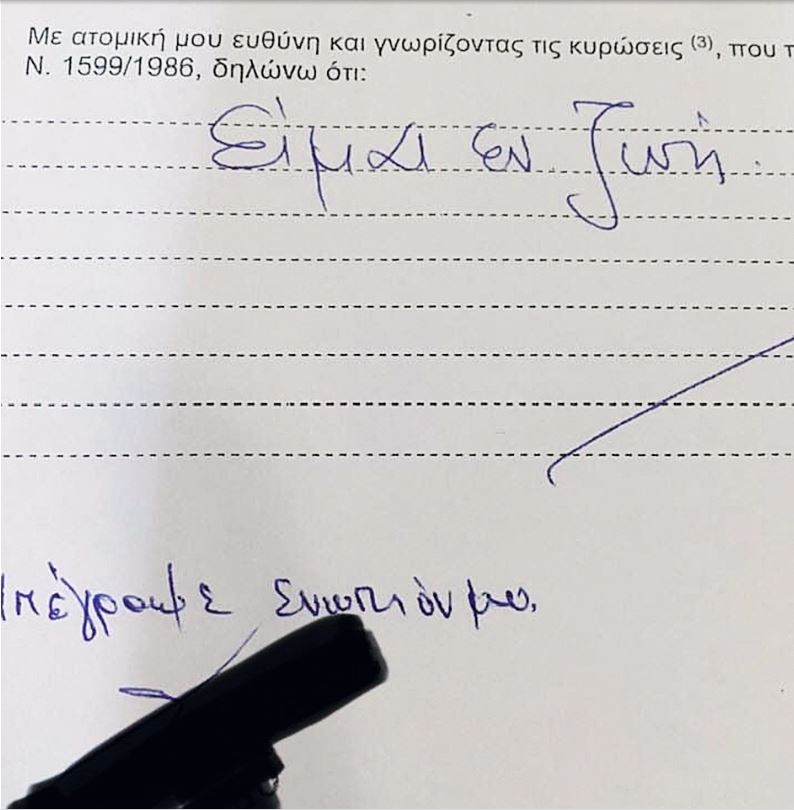 Με ατομική μου ευθύνη και γνωρίζοντας τις κυρώσεις (3), που τ
Ν. 1599/1986, δηλώνω ότι:
Είμαι εν ζωή.
πέγραψε ενωπιόν μου.